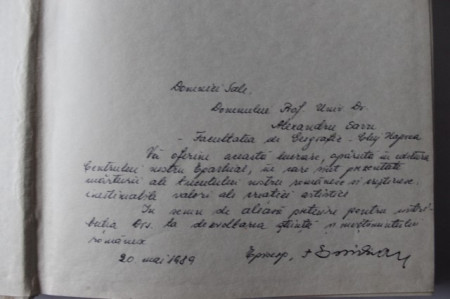 Domniei Sale,
Domnului Prof. Univ. Dr.
Alexandru
- Facultatea de Geografie - Cluj Napoca
Vă oferim această lucrare, apărută în editura
Centrului nostru Eparhial, în care sînt prezentate
mărturii ale trecutului nostru românesc și creștinesc,
inestimabile valori ale creației artistice
În semn de aleasă prețuire pentru contri-
buția Dvs. la dezvoltarea științei și învățămîntului
românesc
20 mai 1989 Episcop, +